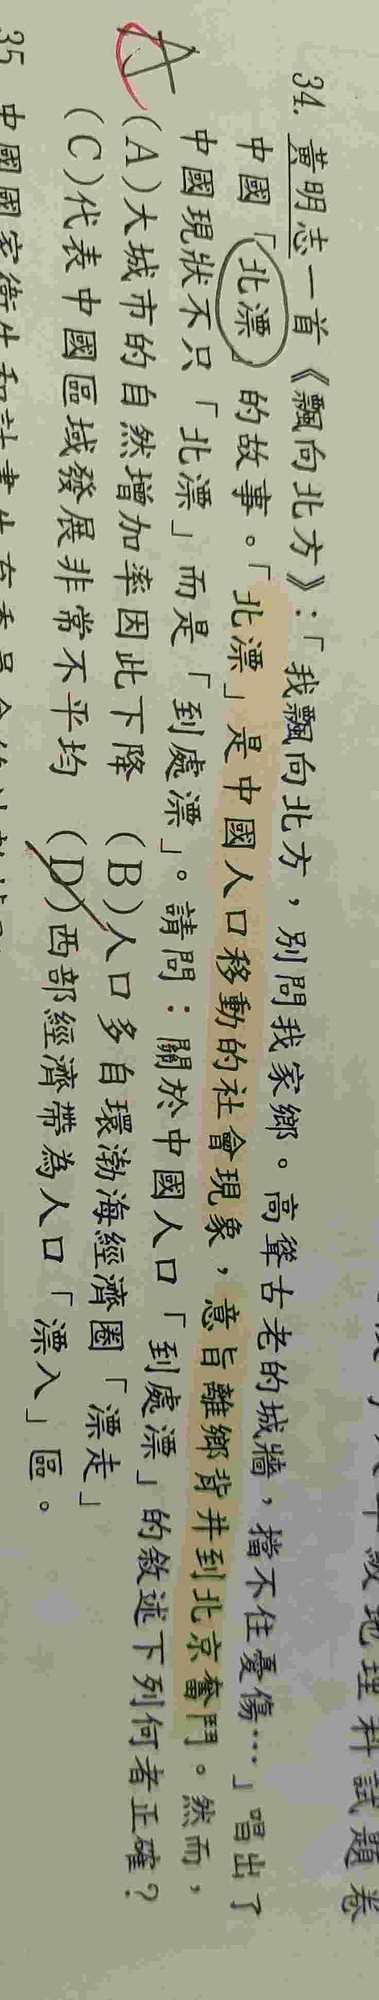 級地理科試題卷
34. 黃明志一首《飄向北方》：「我飄向北方，別問我家鄉。高聳古老的城牆，擋不住憂傷…」唱出了
中國「北漂」的故事。「北漂」是中國人口移動的社會現象，意旨離鄉背井到北京奮鬥。然而，
中國現狀不只「北漂」而是「到處漂」。請問：關於中國人口「到處漂」的敘述下列何者正確？
(A)大城市的自然增加率因此下降 (B)人口多自環渤海經濟圈「漂走」
(C)代表中國區域發展非常不平均 (D)西部經濟帶為人口「漂入」區。
35 中國國家衛生和計畫生育委員會